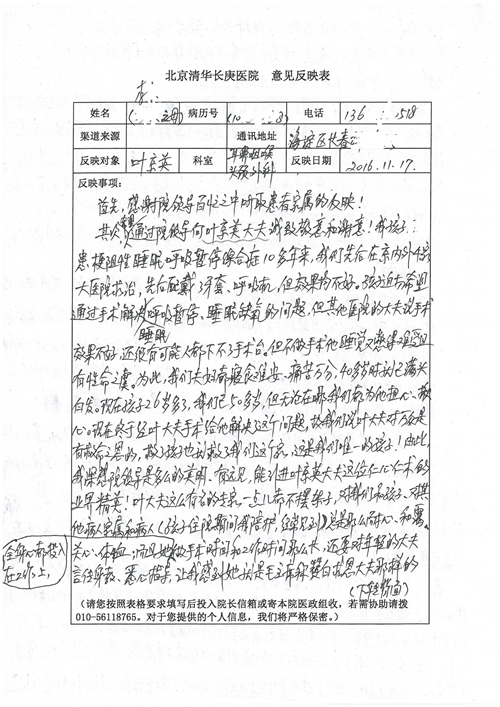 北京清华长庚医院 意见反映表
姓名 病历号 电话 136 1518
渠道来源 通讯地址 海淀区长春
反映对象 叶京英 科室 耳鼻咽喉头颈外科 反映日期 2016.11.17.
反映事项：
首先，感谢院领导百忙之中听取患者家属的反映！
其次，通过院领导向叶京英大夫 致敬意和谢意！我孩子
患梗阻性睡眠呼吸暂停综合症10多年来，我们先后在京内外
大医院求治，先后配戴 牙套、呼吸机，但效果均不好。
通过手术解决呼吸暂停、睡眠缺氧的问题，但其他医院的大夫说手术
睡眠
效果不好，还很有可能人都下不了手术台。但不做手术他睡觉
有性命之虞。为此，我们夫妇都寝食难安、痛苦万分，40多岁时就已满头
白发。现在孩子26岁多了，我们已50多岁，但无论在哪我们都为他担心、
心。现在终于经叶大夫手术给他解决这个问题，故我们说叶大夫对我家是
有救命之恩的，救了孩子也就救了我们这个家，这是我们唯一的孩子！由此，
我深感院领导是多么的英明、有远见，能引进叶京英大夫这位仁心仁术的
业界精英！叶大夫这么有名的专家，一点儿都不摆架子，对我们和孩子、对其
他病人家属和病人（孩子住院期间我陪护，经常见到）总是那么耐心、和蔼、
关心、体恤；而且她做手术时间和工作时间那么长，还要对年轻的大夫
全身心都投入
在工作上，
言传身教、悉心指导，让我感到她就是毛主席称赞白求恩大夫那样的
（下转背面）
（请您按照表格要求填写后投入院长信箱或寄本院医政组收，若需协助请拨
010-56118765。对于您提供的个人信息，我们将严格保密。）